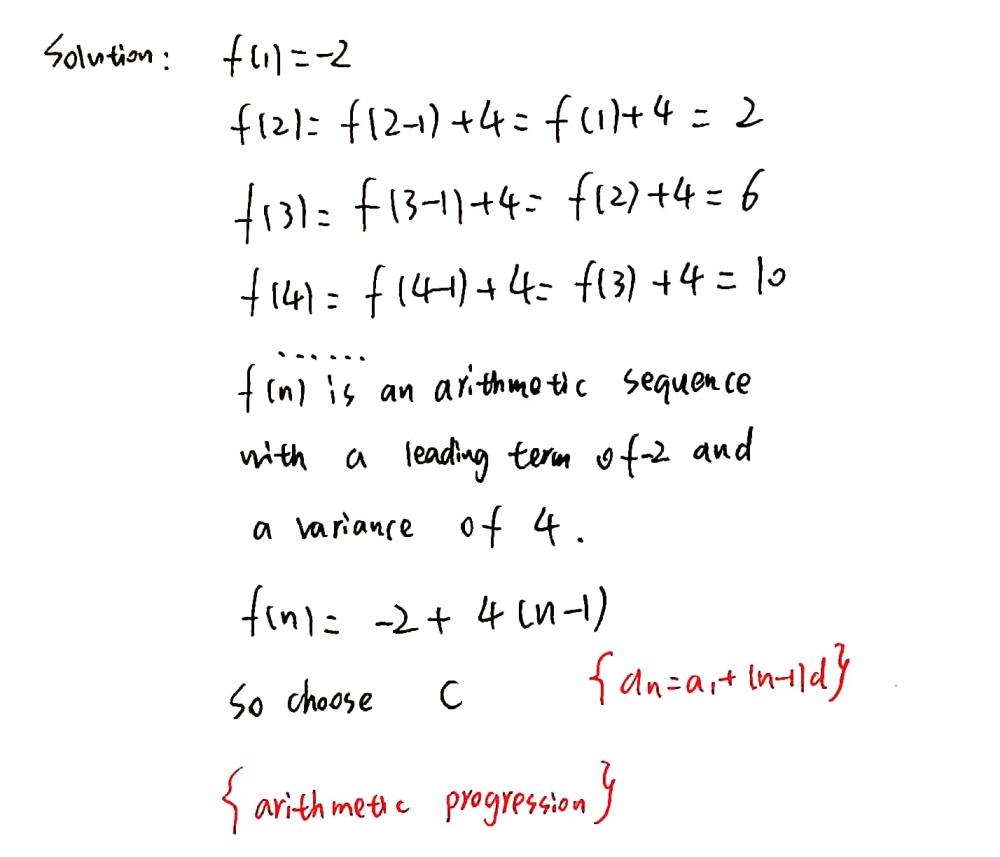 Solution: f(1)=-2
f(2)= f(2-1)+4= f(1)+4 = 2
f(3)= f(3-1)+4= f(2)+4=6
f(4)= f(4-1)+4= f(3)+4=10
......
f(n) is an arithmetic sequence
with a leading term of -2 and
a variance of 4.
f(n)= -2+ 4(n-1)
So choose C {an=a1+(n-1)d}
{arithmetic progression}